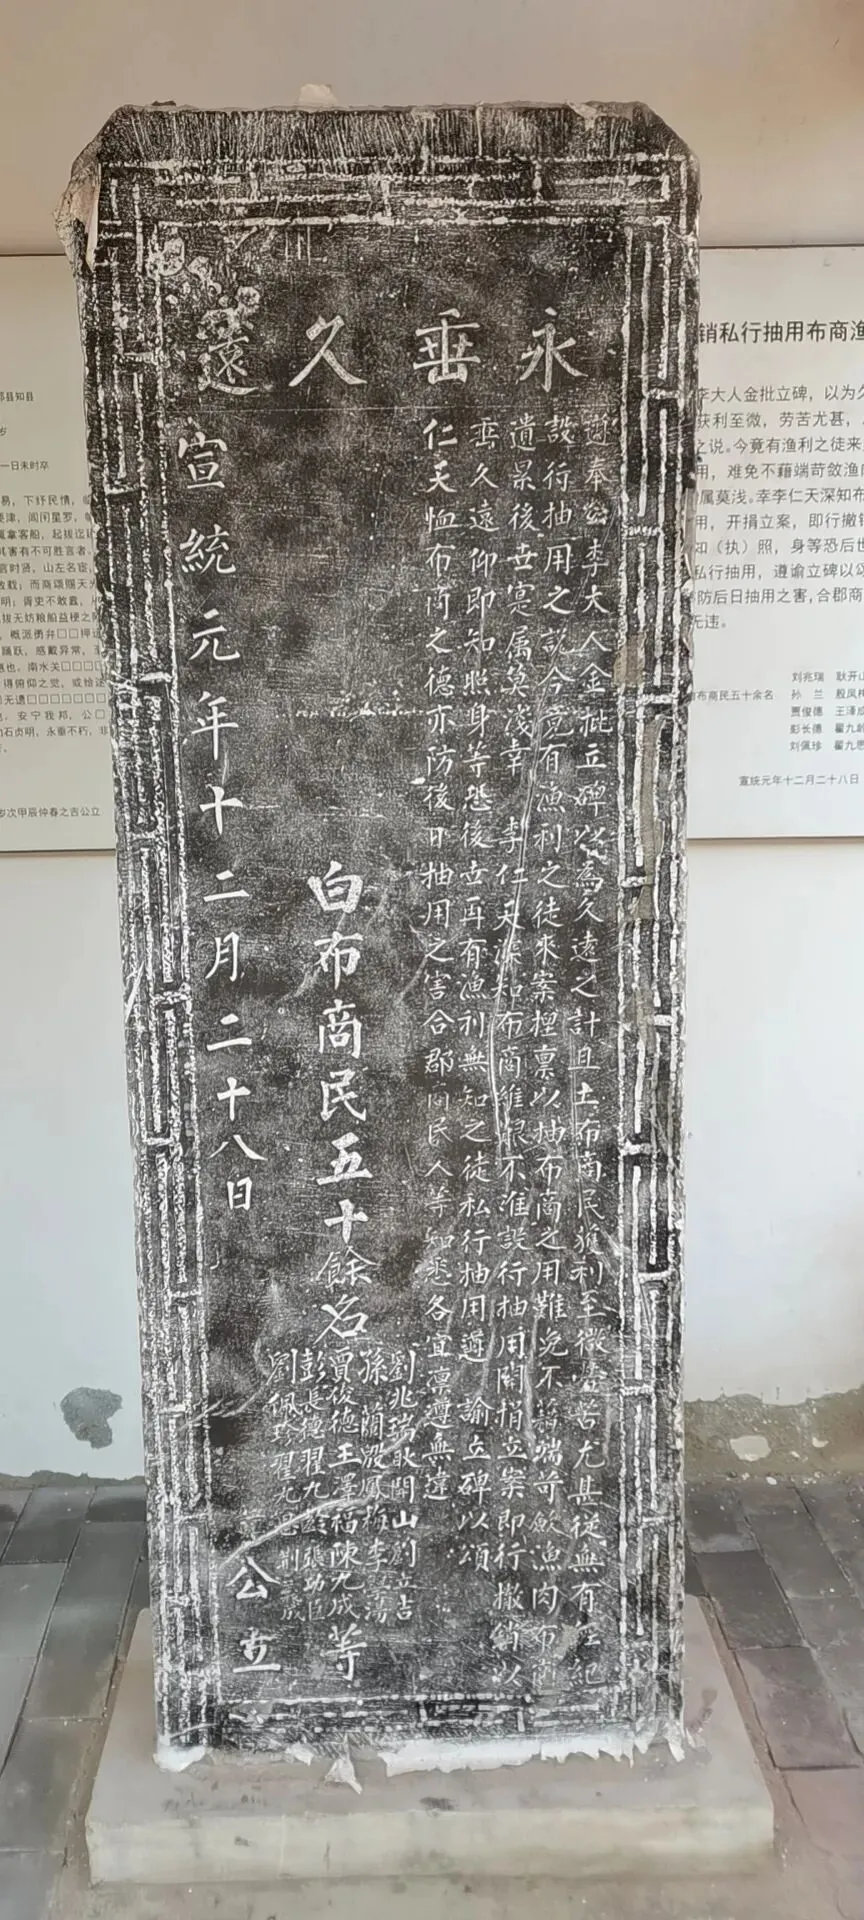 永垂久遠
遵奉李大人金批立碑以為久遠之計且土布商民獲利至微勞苦尤甚從無有經紀
設行抽用之說今竟有漁利之徒來案捏禀以抽布商之用難免不藉端苛斂漁肉布商
遺累後世寔屬莫淺幸 李仁天深知布商維艱不准設行抽用開捐立案即行撤銷以
垂久遠仰即知照身等恐後世再有漁利無知之徒私行抽用遵 諭立碑以頌
仁天恤布商之德亦防後日抽用之害合郡商民人等知悉各宜凛遵無違
白布商民五十餘名
劉兆瑞 耿開山 劉立吉
孫蘭 殷鳳梅 李
賈俊德 王澤福 陳九成
彭長德 翟九齡 張功臣
劉佩珍 翟九思 荆成
等
公立
宣統元年十二月二十八日
销私行抽用布商渔
李大人金批立碑，以为久
获利至微，劳苦尤甚，
之说。今竟有渔利之徒来
用，难免不藉端苛敛渔
属莫浅。幸李仁天深知布
用，开捐立案，即行撤销
知（执）照，身等恐后世
私行抽用，遵谕立碑以颂
防后日抽用之害，合郡商
无违。
刘兆瑞 耿开山
布商民五十余名 孙 兰 殷凤梅
贾俊德 王泽
彭长德 翟九龄
刘佩珍 翟九思
宣统元年十二月二十八日
县知县
岁
一日未时卒
易，下纾民情，
要津，闾闬星罗，
其害有不可胜言者。
言时贤，山左名宦，
故载；而商颂赐天
明；胥吏不敢蠹，
拔无妨粮船益梗之
，概派勇弁□□押运
踊跃，感戴异常，
也。南水关□□□□
得俯仰之觉，或给
无遗□□□□□□□
，安宁我邦，公□
石贞明，永垂不朽，非
岁次甲辰仲春之吉公立